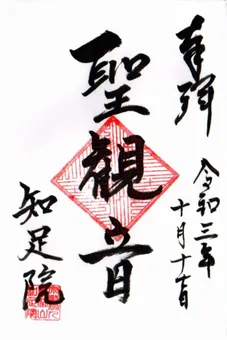 奉拝
令和三年
十月十一日
聖観音
知足院